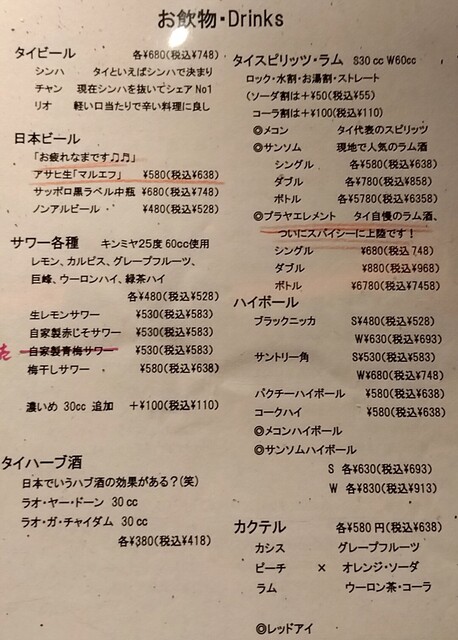 お飲物・Drinks
タイビール 各¥680(税込¥748)
シンハ タイといえばシンハで決まり
チャン 現在シンハを抜いてシェア No1
リオ 軽い口当たりで辛い料理に良し
日本ビール
「お疲れなまです♫♫」
アサヒ生「マルエフ」 ¥580(税込¥638)
サッポロ黒ラベル中瓶 ¥680(税込¥748)
ノンアルビール ¥480(税込¥528)
サワー各種 キンミヤ25度 60cc使用
レモン、カルピス、グレープフルーツ、
巨峰、ウーロンハイ、緑茶ハイ
各¥480(税込¥528)
生レモンサワー ¥530(税込¥583)
自家製赤じそサワー ¥530(税込¥583)
自家製青梅サワー ¥530(税込¥583)
梅干しサワー ¥580(税込¥638)
濃いめ 30cc 追加 +¥100(税込¥110)
タイハーブ酒
日本でいうハブ酒の効果がある?(笑)
ラオ・ヤー・ドーン 30cc
ラオ・ガ・チャイダム 30cc
各¥380(税込¥418)
タイスピリッツ・ラム S30cc W60cc
ロック・水割・お湯割・ストレート
(ソーダ割は+¥50(税込¥55)
コーラ割は+¥100(税込¥110)
◎メコン タイ代表のスピリッツ
◎サンソム 現地で人気のラム酒
シングル 各¥580(税込¥638)
ダブル 各¥780(税込¥858)
ボトル 各¥5780(税込¥6358)
◎プラヤエレメント タイ自慢のラム酒、
ついにスパイシーに上陸です!
シングル ¥680(税込¥748)
ダブル ¥880(税込¥968)
ボトル ¥6780(税込¥7458)
ハイボール
ブラックニッカ S¥480(税込¥528)
W¥630(税込¥693)
サントリー角 S¥530(税込¥583)
W¥680(税込¥748)
パクチーハイボール ¥580(税込¥638)
コークハイ ¥580(税込¥638)
◎メコンハイボール
◎サンソムハイボール
S 各¥630(税込¥693)
W 各¥830(税込¥913)
カクテル 各¥580円(税込¥638)
カシス グレープフルーツ
ピーチ × オレンジ・ソーダ
ラム ウーロン茶・コーラ
◎レッドアイ